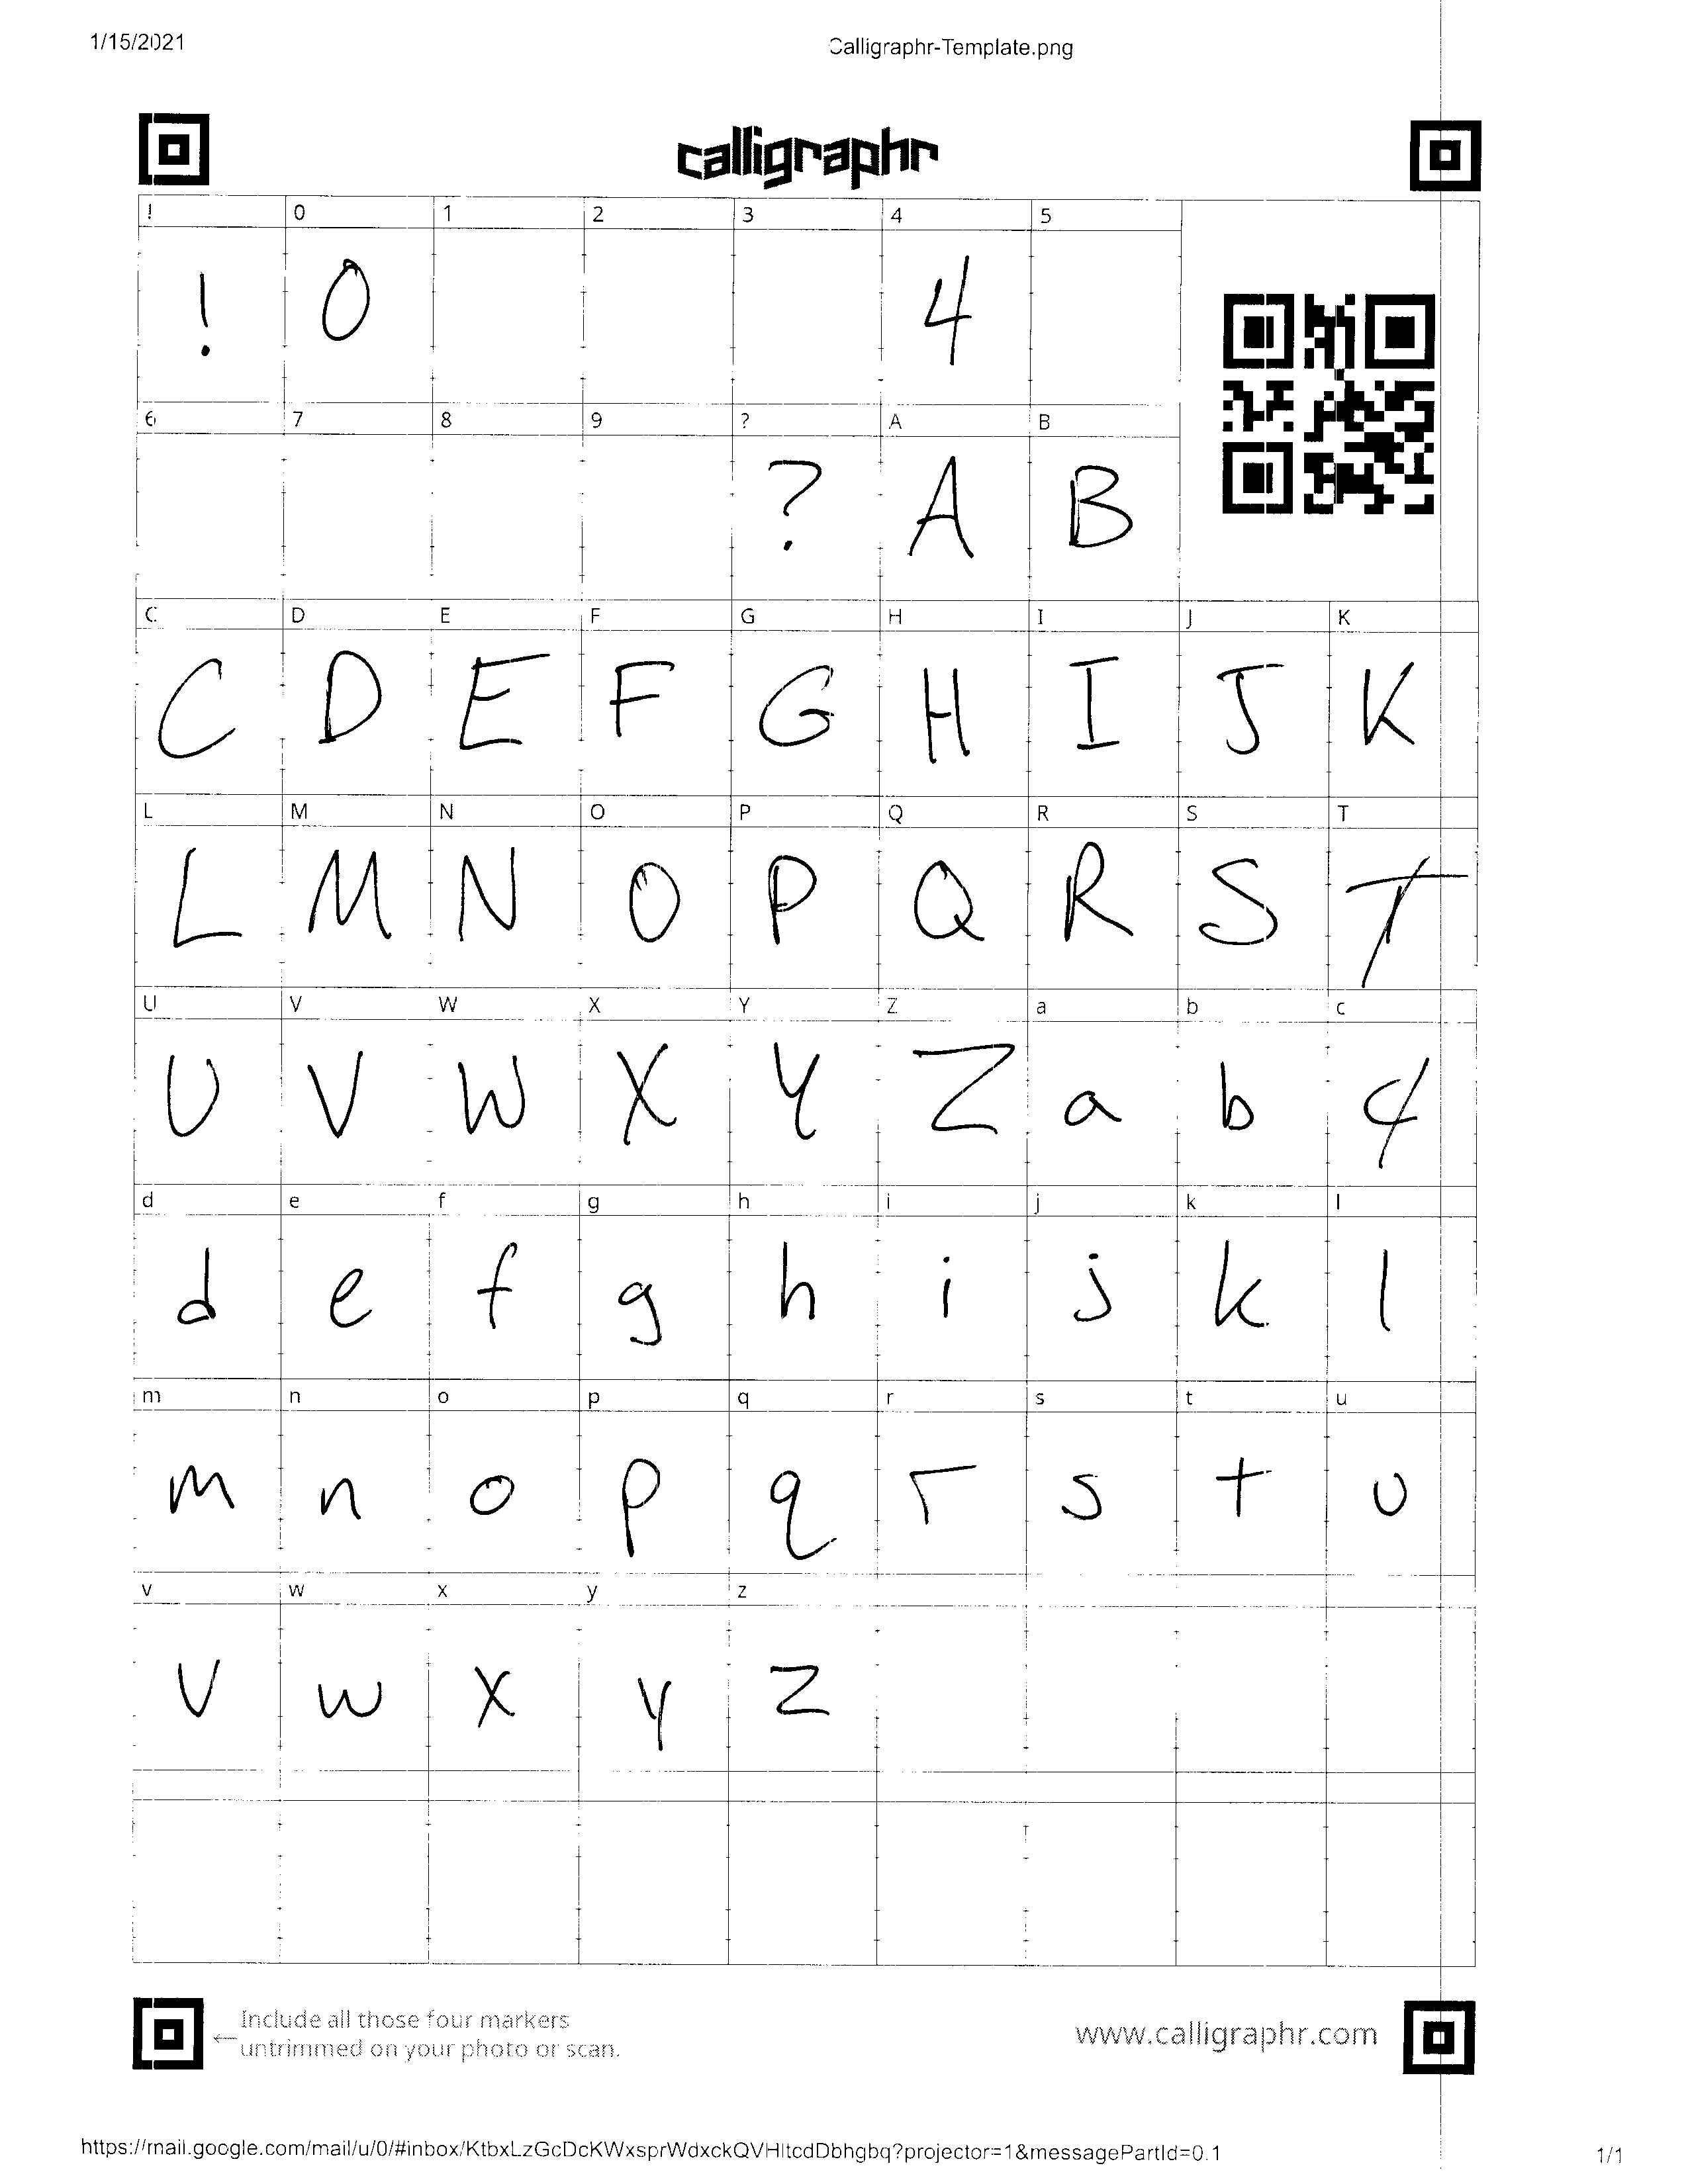 1/15/2021 Calligraphr-Template.png
calligraphr
! 0 1 2 3 4 5
! 0 4
6 7 8 9 ? A B
? A B
C D E F G H I J K
C D E F G H I J K
L M N O P Q R S T
L M N O P Q R S T
U V W X Y Z a b c
U V W X Y Z a b 4
d e f g h i j k l
d e f g h i j k l
m n o p q r s t u
m n o p q r s t u
v w x y z
v w x y z
← Include all those four markers
untrimmed on your photo or scan.
www.calligraphr.com
https://mail.google.com/mail/u/0/#inbox/KtbxLzGcDcKWxsprWdxckQVHltcdDbhgbq?projector=1&messagePartId=0.1 1/1